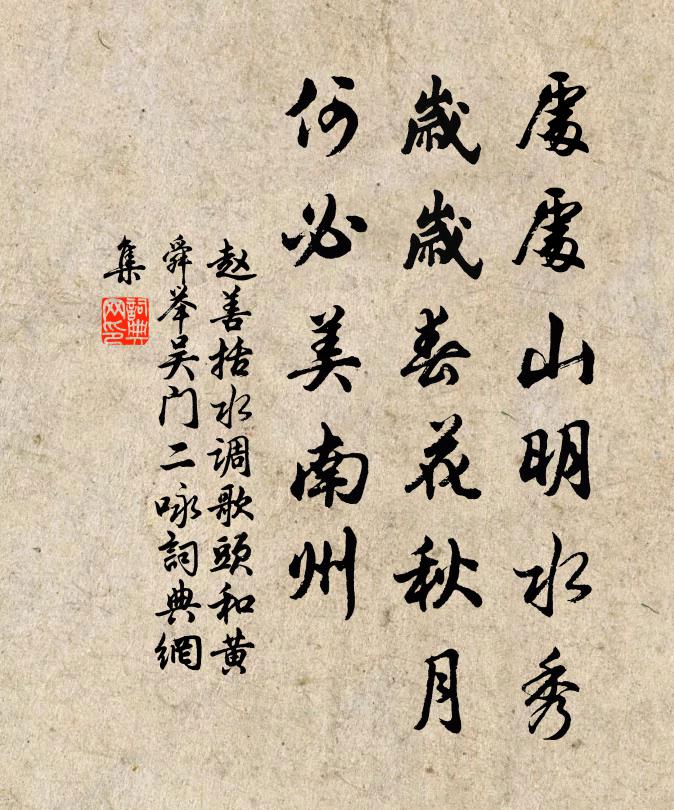 處處山明水秀
歲歲春花秋月
何必美南州
赵善括水调歌頭和黄
舜举吴门二咏詞典網
集
詞典網印